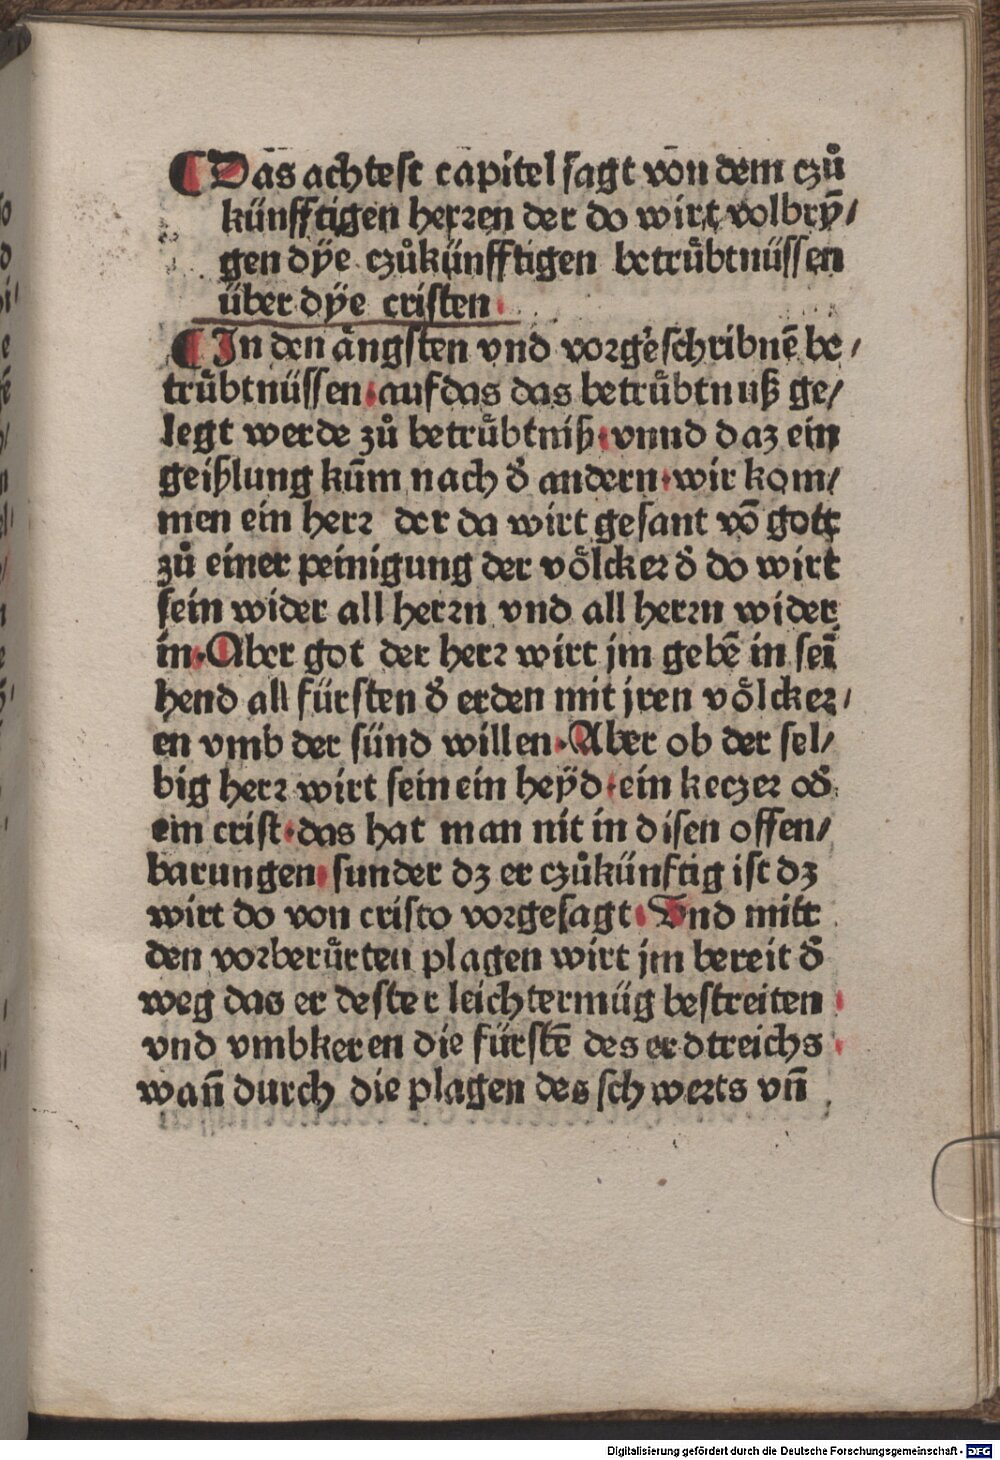 ¶ Das achtest capitel sagt von dem czů
künfftigen herren der do wirt volbrÿ̄/
gen dÿe czůkünfftigen betrůbtnüssen
über dÿe cristen
¶ In den ängsten vnd vorgeschribnē be/
trůbtnüssen·auf das das betrůbtnuß ge/
legt werde zů betrůbtniß·vnnd daz ein
geißlung kūm nach d̓ andern·wir kom/
men ein herr der da wirt gesant vō gott
zů einer peinigung der vo̊lcker d̓ do wirt
sein wider all herrn vnd all herrn wider
in·Aber got der herr wirt jm gebē in seī
hend all fürsten d̓ erden mit jren vo̊lcker/
en vmb der sünd willen·Aber ob der sel/
big herr wirt sein ein heÿd·ein keczer od̓
ein crist·das hat man nit in disen offen/
barungen·sunder dz er czůkünftig ist dz
wirt do von cristo vorgesagt·Vnd mitt
den vorberůrten plagen wirt jm bereit d̓
weg das er dester leichter müg bestreiten
vnd vmbkeren die fürstē des erdtreichs
wan̄ durch die plagen des schwerts vn̄
Digitalisierung gefördert durch die Deutsche Forschungsgemeinschaft - DFG